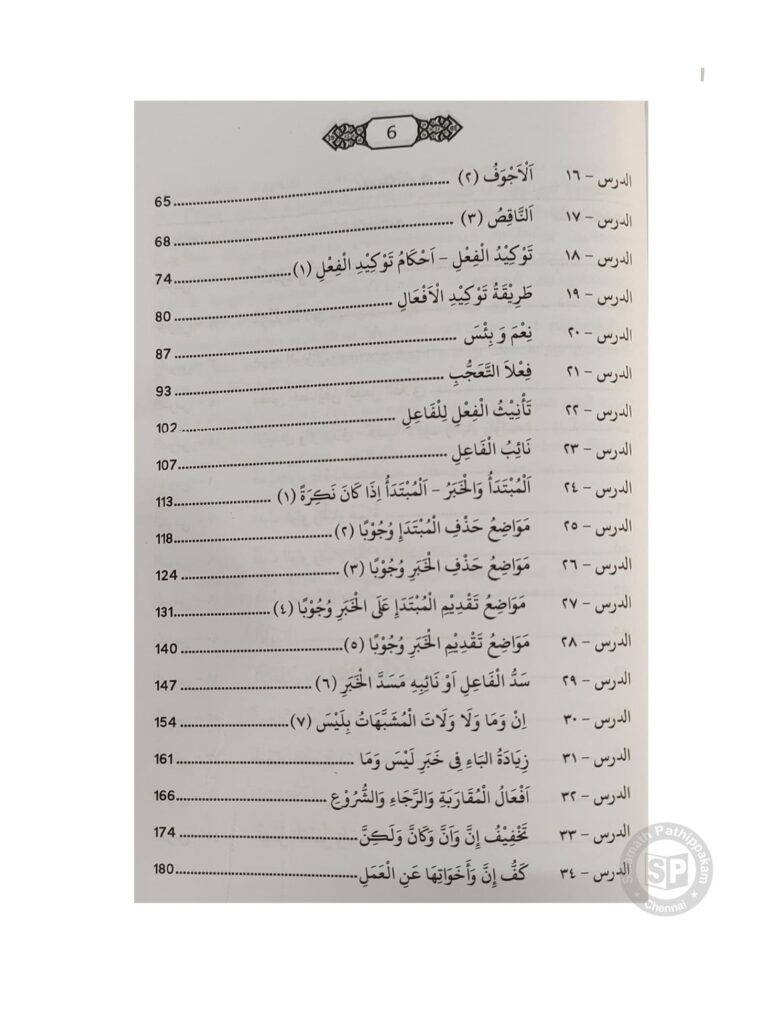 6
الدرس - ١٦ اَلْاَجْوَفُ (٢) ........ 65
الدرس - ١٧ اَلنَّاقِصُ (٣) ........ 68
الدرس - ١٨ تَوْكِيْدُ الْفِعْلِ - اَحْكَامُ تَوْكِيْدِ الْفِعْلِ (١) ........ 74
الدرس - ١٩ طَرِيْقَةُ تَوْكِيْدِ الْاَفْعَالِ ........ 80
الدرس - ٢٠ نِعْمَ وَ بِئْسَ ........ 87
الدرس - ٢١ فِعْلاَ التَّعَجُّبِ ........ 93
الدرس - ٢٢ تَأْنِيْثُ الْفِعْلِ لِلْفَاعِلِ ........ 102
الدرس - ٢٣ نَائِبُ الْفَاعِلِ ........ 107
الدرس - ٢٤ اَلْمُبْتَدَأُ وَالْخَبَرُ - اَلْمُبْتَدَأُ اِذَا كَانَ نَكِرَةً (١) ........ 113
الدرس - ٢٥ مَوَاضِعُ حَذْفِ الْمُبْتَدَإِ وُجُوْبًا (٢) ........ 118
الدرس - ٢٦ مَوَاضِعُ حَذْفِ الْخَبَرِ وُجُوْبًا (٣) ........ 124
الدرس - ٢٧ مَوَاضِعُ تَقْدِيْمِ الْمُبْتَدَإِ عَلَى الْخَبَرِ وُجُوْبًا (٤) ........ 131
الدرس - ٢٨ مَوَاضِعُ تَقْدِيْمِ الْخَبَرِ وُجُوْبًا (٥) ........ 140
الدرس - ٢٩ سَدُّ الْفَاعِلِ اَوْ نَائِبِهِ مَسَدَّ الْخَبَرِ (٦) ........ 147
الدرس - ٣٠ اِنْ وَمَا وَلَا وَلَاتَ الْمُشَبَّهَاتُ بِلَيْسَ (٧) ........ 154
الدرس - ٣١ زِيَادَةُ البَاءِ فِى خَبَرِ لَيْسَ وَمَا ........ 161
الدرس - ٣٢ اَفْعَالُ الْمُقَارَبَةِ وَالرَّجَاءِ وَالشُّرُوْعِ ........ 166
الدرس - ٣٣ تَخْفِيْفُ إِنَّ وَاَنَّ وَكَانَّ وَلَكِنَّ ........ 174
الدرس - ٣٤ كَفُّ إِنَّ وَأَخَوَاتِهَا عَنِ الْعَمَلِ ........ 180
Pathippakam
SP
Chennai